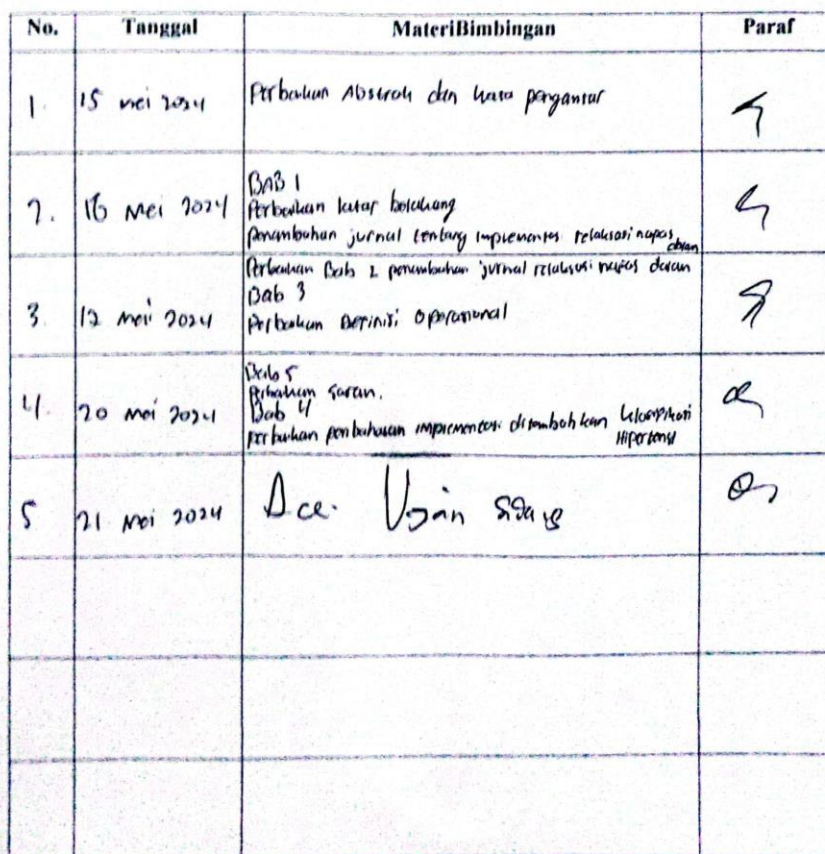 No. Tanggal MateriBimbingan Paraf
1. 15 mei 2024 Perbaikan Abstrak dan kata pengantar
2. 16 Mei 2024 BAB 1
Perbaikan latar belakang
Penambahan jurnal tentang implementasi relaksasi napas dalam
3. 17 Mei 2024 Perbaikan Bab 2 penambahan jurnal relaksasi napas dalam
Bab 3
Perbaikan Definisi Operasional
4. 20 Mei 2024 Bab 5
Perbaikan saran.
Bab 4
perbaikan pembahasan implementasi ditambahkan klasifikasi
Hipertensi
5 21 Mei 2024 Acc. Ujian Sidang